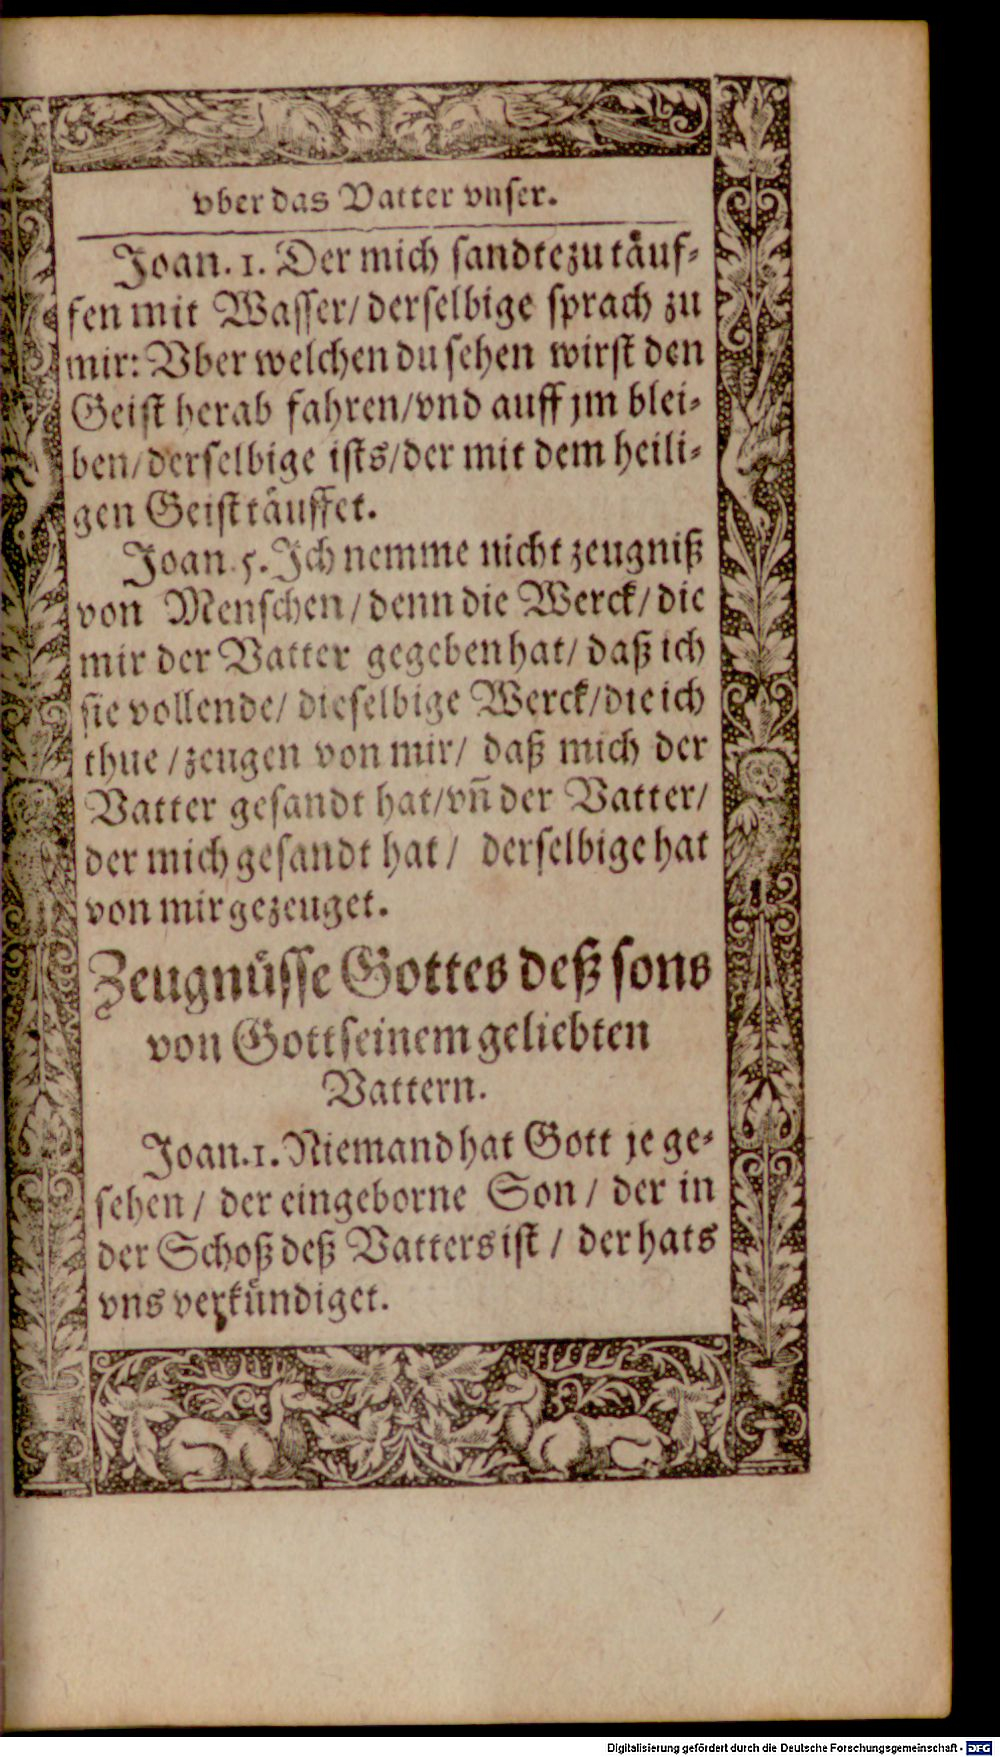 vber das Vatter vnser.
Joan. 1. Der mich sandte zu täuf-
fen mit Wasser/ derselbige sprach zu
mir: Vber welchen du sehen wirst den
Geist herab fahren/vnd auff jm blei-
ben/derselbige ists/der mit dem heili-
gen Geist täuffet.
Joan. 5. Ich nemme nicht zeugniß
von Menschen/denn die Werck/die
mir der Vatter gegeben hat/ daß ich
sie vollende/ dieselbige Werck/die ich
thue /zeugen von mir/ daß mich der
Vatter gesandt hat/vñ der Vatter/
der mich gesandt hat/ derselbige hat
von mir gezeuget.
Zeugnüsse Gottes deß sons
von Gott seinem geliebten
Vattern.
Joan. 1. Niemand hat Gott je ge-
sehen/ der eingeborne Son/ der in
der Schoß deß Vatters ist / der hats
vns verkündiget.
Digitalisierung gefördert durch die Deutsche Forschungsgemeinschaft - DFG